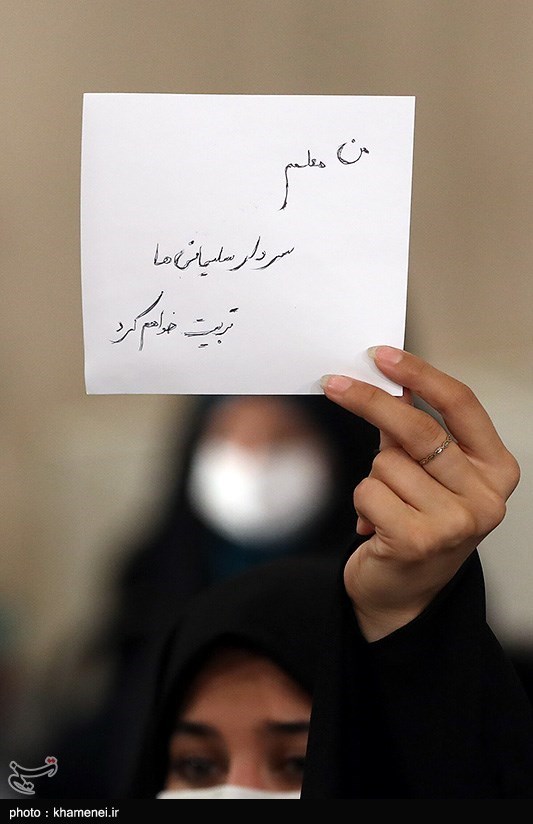 من معلمم
سردار سلیمانی‌ها
تربیت خواهم کرد
تسنیم
photo : khamenei.ir